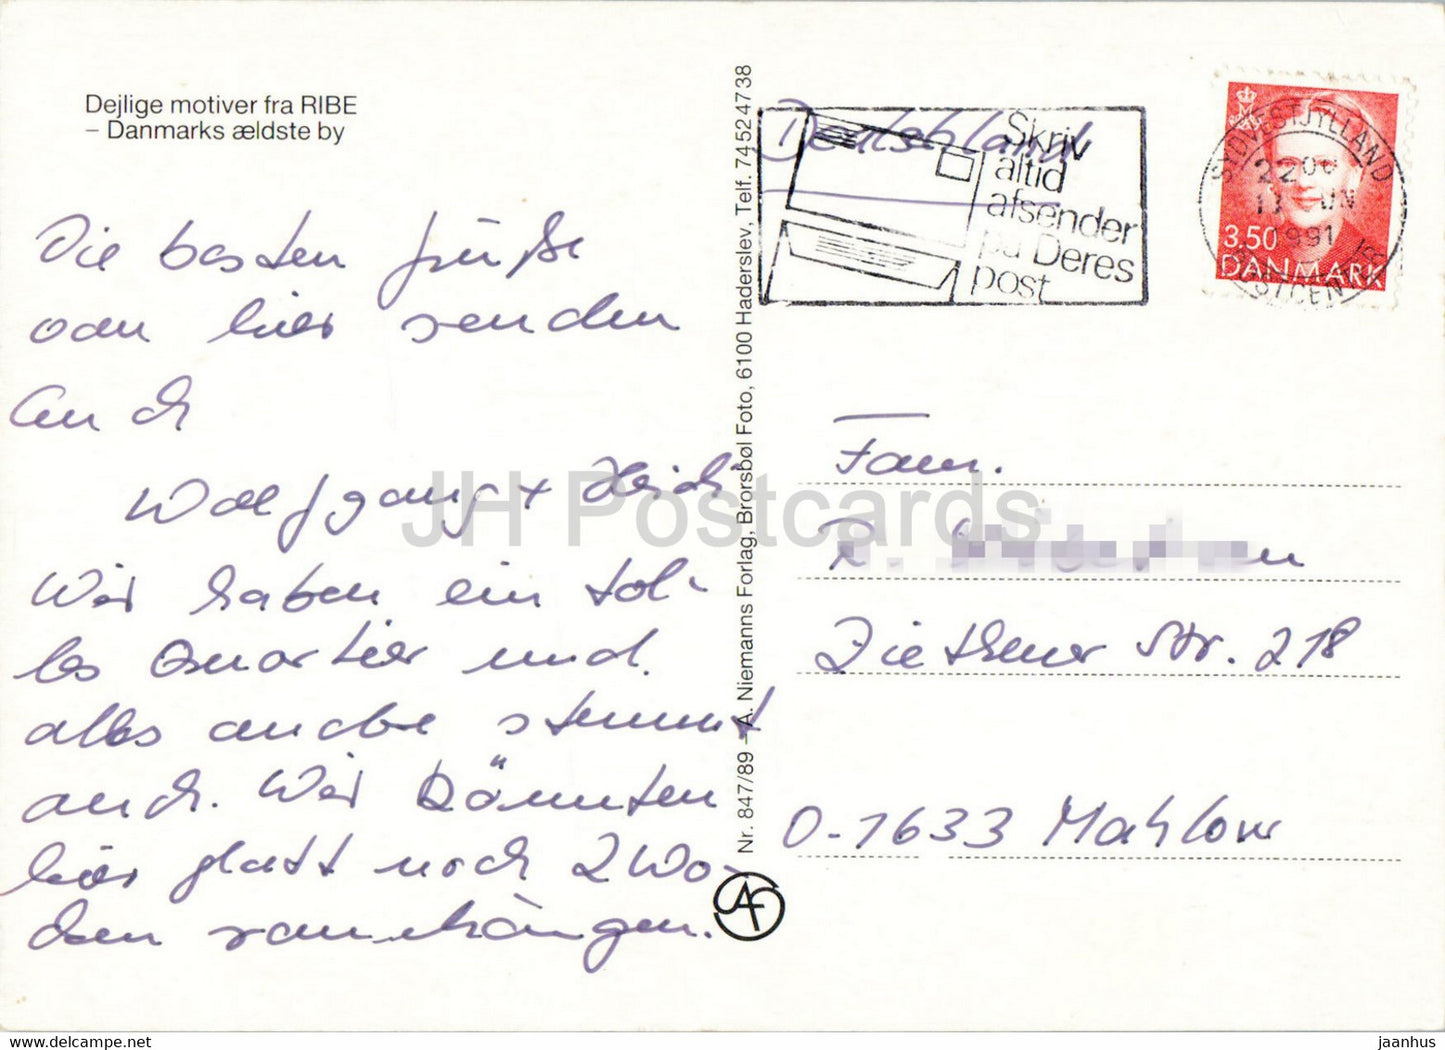 Dejlige motiver fra RIBE
– Danmarks ældste by
Die besten Grüße
von hier senden
Euch
Wolfgang + Heidi
Wir haben ein tol-
les Quartier und
alles andre stimmt
auch. Wir könnten
hier glatt noch 2 Wo-
chen ranhängen.
Nr. 847/89 – A. Niemanns Forlag, Brorsbøl Foto, 6100 Haderslev, Telf. 74524738
Deutschland
Skriv
altid
afsender
på Deres
post
SYDVESTJYLLAND
1991
POSTCENTER
3.50
DANMARK
Fam.
R.
Ziethener Str. 218
O-1633 Mahlow
JH Postcards
https://www.delcampe.net
jaanhus